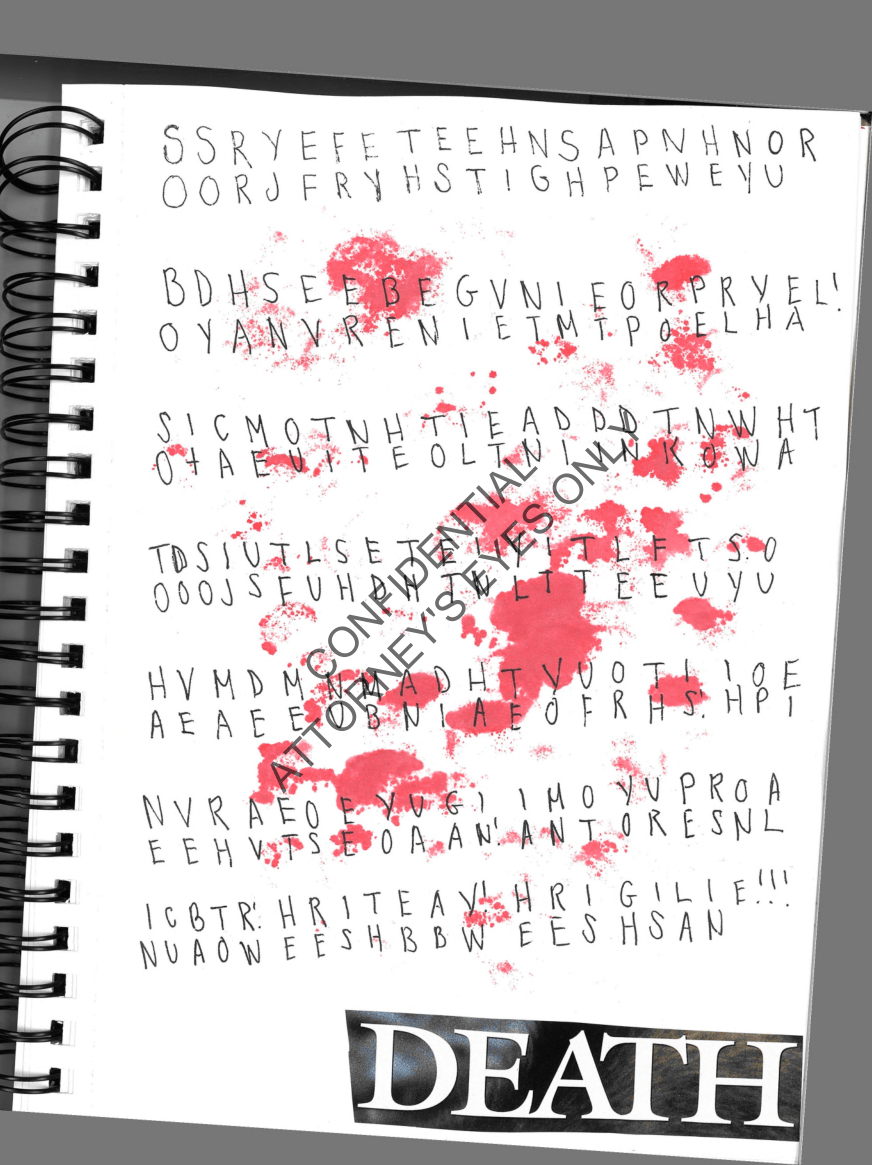 S S R Y E F E T E E H N S A P N H N O R
O O R J F R Y H S T I G H P E W E Y U
B D H S E E B E G V N I E O R P R Y E L!
O Y A N V R E N I E T M T P O E L H A
S I C M O T N H T I E A D D D T N W H T
O I A E U I T E O L T N I I N K O W A
T D S I U T L S E T E I F I T L F T S O
O O O J S F U H D H I N L I T E E U Y U
H V M D M N M A D H T Y U O T I I O E
A E A E E U B N I A E O F R H S! H P I
N V R A E O E Y U G I I M O Y U P R O A
E E H V T S E O A A N! A N T O R E S N L
I C B T R! H R I T E A Y! H R I G I L I E!!!
N U A O W E E S H B B W E E S H S A N
CONFIDENTIAL
ATTORNEY'S EYES ONLY
DEATH